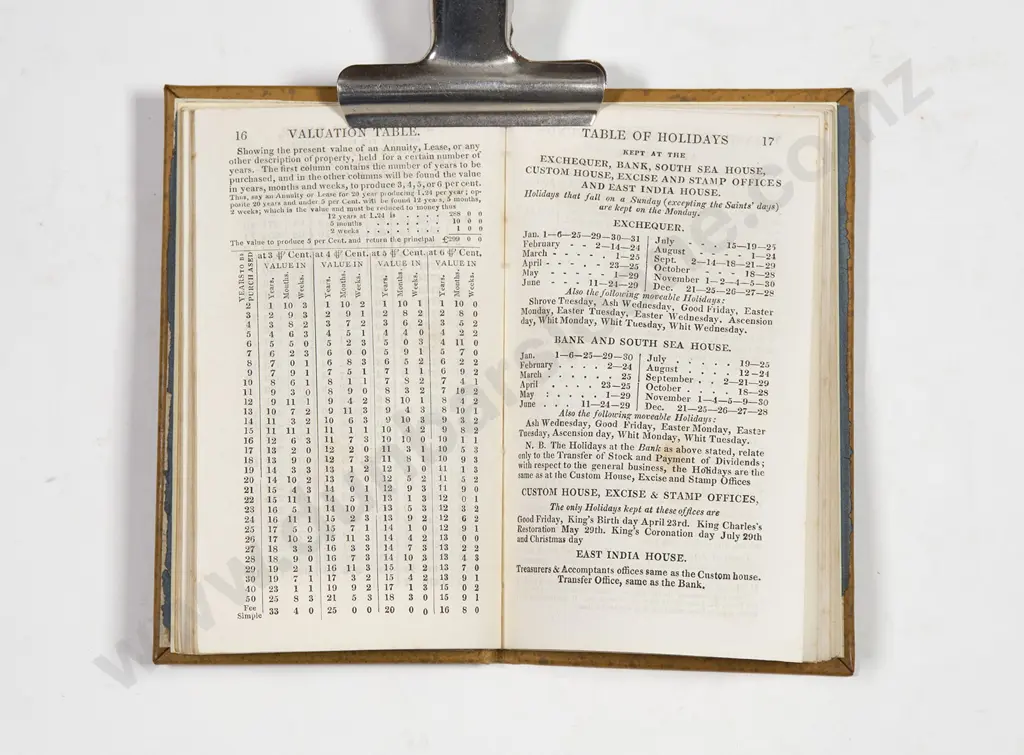 16 VALUATION TABLE.
Showing the present value of an Annuity, Lease, or any
other description of property, held for a certain number of
years. The first column contains the number of years to be
purchased, and in the other columns will be found the value
in years, months and weeks, to produce 3, 4, 5, or 6 per cent.
Thus, say an Annuity or Lease for 20 year producing L24 per year; op-
posite 20 years and under 5 per Cent. will be found 12 years, 5 months,
2 weeks; which is the value and must be reduced to money thus
12 years at L.24 is . . . . . 288 0 0
5 months . . . . . . . 10 0 0
2 weeks . . . . . . . 1 0 0
The value to produce 5 per Cent. and return the principal £299 0 0
YEARS TO BE PURCHASED at 3 ⅌ Cent. at 4 ⅌ Cent. at 5 ⅌ Cent. at 6 ⅌ Cent,
VALUE IN VALUE IN VALUE IN VALUE IN
Years. Months. Weeks. Years. Months. Weeks. Years. Months. Weeks. Years. Months. Weeks.
2 1 10 3 1 10 2 1 10 1 1 10 0
3 2 9 3 2 9 1 2 8 2 2 8 0
4 3 8 2 3 7 2 3 6 2 3 5 2
5 4 6 3 4 5 1 4 4 0 4 2 2
6 5 5 0 5 2 3 5 0 3 4 11 0
7 6 2 3 6 0 0 5 9 1 5 7 0
8 7 0 1 6 8 3 6 5 2 6 2 2
9 7 9 1 7 5 1 7 1 1 6 9 2
10 8 6 1 8 1 1 7 8 2 7 4 1
11 9 3 0 8 9 0 8 3 2 7 10 2
12 9 11 1 9 4 2 8 10 1 8 4 2
13 10 7 2 9 11 3 9 4 3 8 10 1
14 11 3 2 10 6 3 9 10 3 9 3 2
15 11 11 1 11 1 1 10 4 2 9 8 2
16 12 6 3 11 7 3 10 10 0 10 1 1
17 13 2 0 12 2 0 11 3 1 10 5 3
18 13 9 0 12 7 3 11 8 1 10 9 3
19 14 3 3 13 1 2 12 1 0 11 1 3
20 14 10 2 13 7 0 12 5 2 11 5 2
21 15 4 3 14 0 1 12 9 3 11 9 0
22 15 11 1 14 5 1 13 1 3 12 0 1
23 16 5 1 14 10 1 13 5 3 12 3 2
24 16 11 1 15 2 3 13 9 2 12 6 2
25 17 5 0 15 7 1 14 1 0 12 9 1
26 17 10 2 15 11 3 14 4 2 13 0 0
27 18 3 3 16 3 3 14 7 3 13 2 2
28 18 9 0 16 7 3 14 10 3 13 4 3
29 19 2 1 16 11 3 15 1 2 13 7 0
30 19 7 1 17 3 2 15 4 2 13 9 1
40 23 1 1 19 9 2 17 1 3 15 0 2
50 25 8 3 21 5 3 18 3 0 15 9 1
Fee Simple 33 4 0 25 0 0 20 0 0 16 8 0
TABLE OF HOLIDAYS 17
KEPT AT THE
EXCHEQUER, BANK, SOUTH SEA HOUSE,
CUSTOM HOUSE, EXCISE AND STAMP OFFICES
AND EAST INDIA HOUSE.
Holidays that fall on a Sunday (excepting the Saints' days)
are kept on the Monday.
EXCHEQUER.
Jan. 1—6—25—29—30—31
February - - 2—14—24
March - - - - - 1—25
April - - - - - 23—25
May - - - - - 1—29
June - - - 11—24—29
July - - - 15—19—25
August - - - - 1—24
Sept. 2—14—18—21—29
October - - - - 18—28
November 1—2—4—5—30
Dec. 21—25—26—27—28
Also the following moveable Holidays:
Shrove Tuesday, Ash Wednesday, Good Friday, Easter
Monday, Easter Tuesday, Easter Wednesday. Ascension
day, Whit Monday, Whit Tuesday, Whit Wednesday.
BANK AND SOUTH SEA HOUSE.
Jan. 1—6—25—29—30
February . . . . 2—24
March . . . . . 25
April . . . . 23—25
May : . . . . 1—29
June . . . 11—24—29
July . . . . . 19—25
August . . . . 12—24
September . . 2—21—29
October . . . . 18—28
November 1—4—5—9—30
Dec. 21—25—26—27—28
Also the following moveable Holidays:
Ash Wednesday, Good Friday, Easter Monday, Easter
Tuesday, Ascension day, Whit Monday, Whit Tuesday.
N. B. The Holidays at the Bank as above stated, relate
only to the Transfer of Stock and Payment of Dividends;
with respect to the general business, the Holidays are the
same as at the Custom House, Excise and Stamp Offices
CUSTOM HOUSE, EXCISE & STAMP OFFICES,
The only Holidays kept at these offices are
Good Friday, King's Birth day April 23rd. King Charles's
Restoration May 29th. King's Coronation day July 29th
and Christmas day
EAST INDIA HOUSE.
Treasurers & Accomptants offices same as the Custom house.
Transfer Office, same as the Bank.